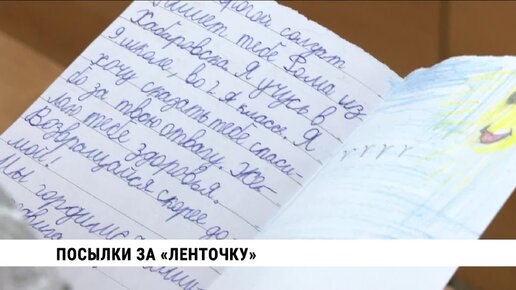 солдат
пишет тебе Рома из
Хабаровска. Я учусь в
9 школе, во 2 А классе. Я
хочу сказать тебе спаси-
бо за твою отвагу. Же-
лаю тебе здоровья.
Возвращайся скорее до-
мой!
Мы гордимся
ПОСЫЛКИ ЗА «ЛЕНТОЧКУ»